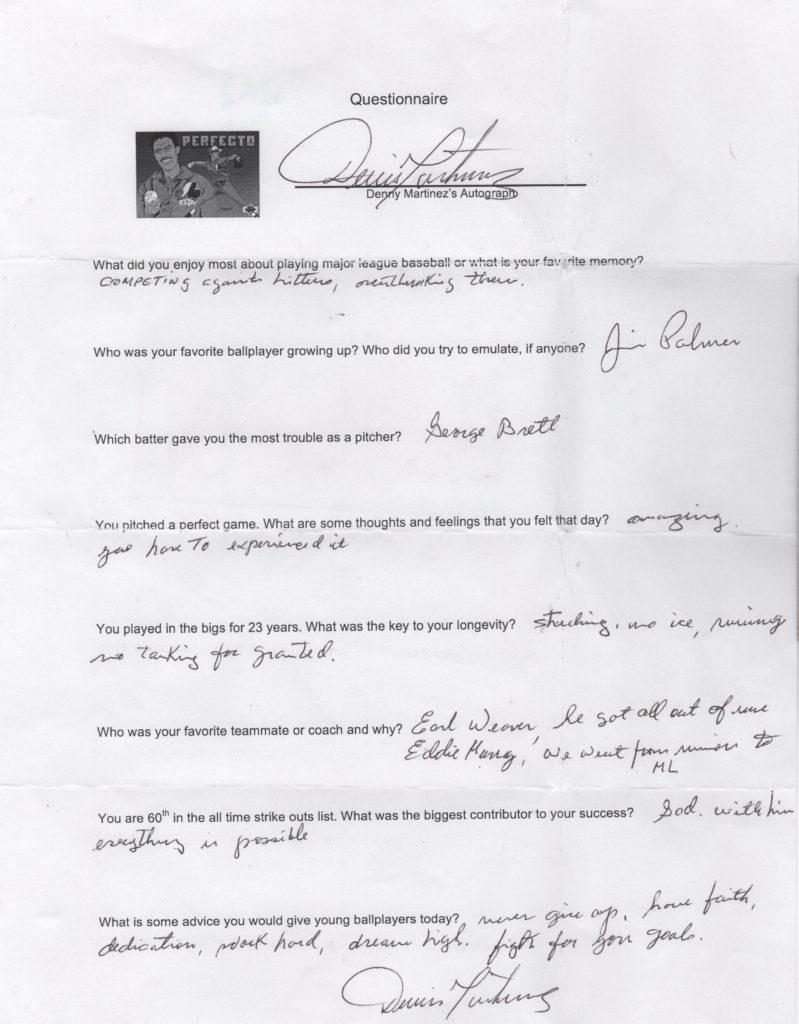 Questionnaire
PERFECTO
expos
Denis Martinez
Denny Martinez's Autograph
What did you enjoy most about playing major league baseball or what is your fav rite memory?
COMPETING against hitters, overthinking them.
Who was your favorite ballplayer growing up? Who did you try to emulate, if anyone? Jim Palmer
Which batter gave you the most trouble as a pitcher? George Brett
You pitched a perfect game. What are some thoughts and feelings that you felt that day? amazing.
you have To experienced it
You played in the bigs for 23 years. What was the key to your longevity? no ice, running
no taking for granted.
Who was your favorite teammate or coach and why? Earl Weaver, he got all out of me
Eddie Murray, we went from minors to
ML
You are 60th in the all time strike outs list. What was the biggest contributor to your success? God. with him
everything is possible
What is some advice you would give young ballplayers today? never give up, have faith,
dedication, work hard, dream high. fight for your goals.
Denis Martinez